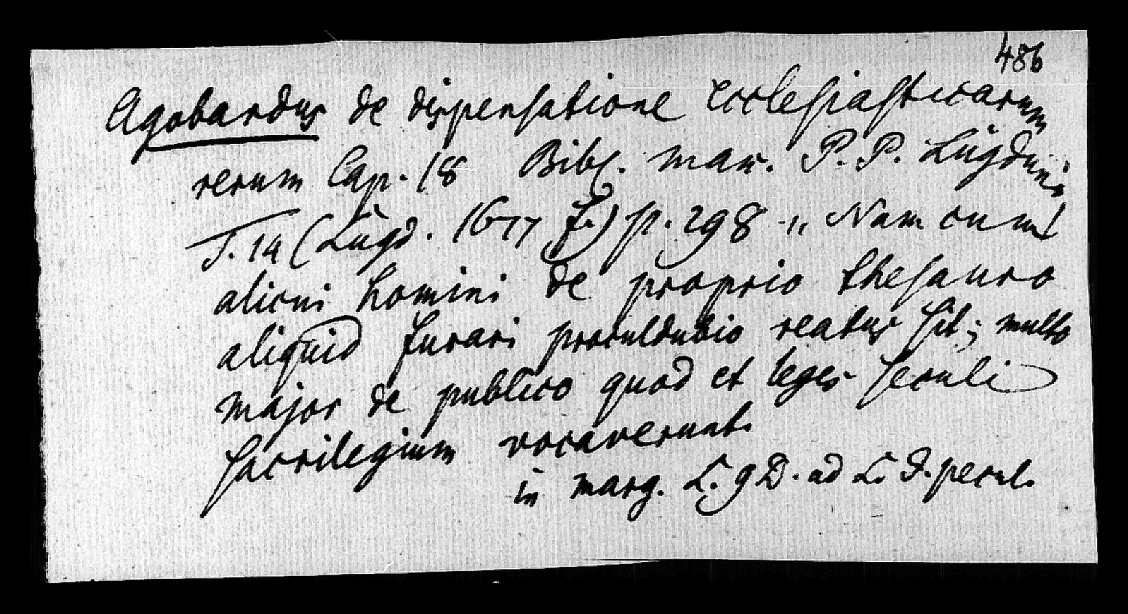 486
Agobardus de dispensatione ecclesiasticarum
rerum Cap. 18 Bibl. max. P. P. Lugdunis
T. 14 (Lugd. 1677 f.) p. 298 „ Nam cum
alicui homini de proprio thesauro
aliquid furari proculdubio reatus sit; multo
major de publico quod et leges seculi
sacrilegium vocaverunt.
in marg. L. 9 D. ad L. J. pecul.